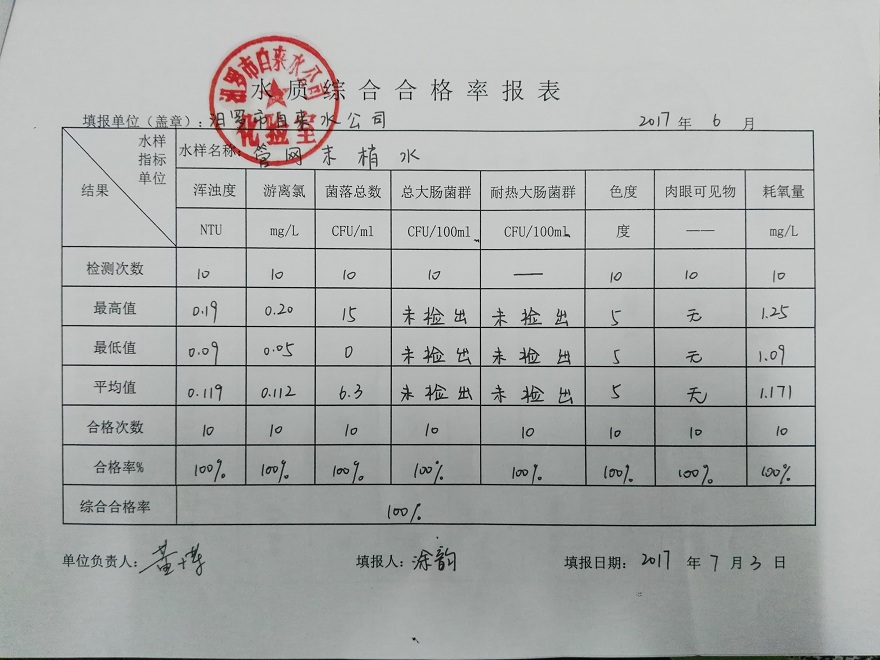 汨罗市自来水公司
化验室
水质综合合格率报表
填报单位(盖章):汨罗市自来水公司 2017年 6 月
水样
指标
单位
结果
水样名称:管网末梢水
浑浊度 游离氯 菌落总数 总大肠菌群 耐热大肠菌群 色度 肉眼可见物 耗氧量
NTU mg/L CFU/ml CFU/100ml CFU/100ml 度 —— mg/L
检测次数 10 10 10 10 — 10 10 10
最高值 0.19 0.20 15 未检出 未检出 5 无 1.25
最低值 0.09 0.05 0 未检出 未检出 5 无 1.09
平均值 0.119 0.112 6.3 未检出 未检出 5 无 1.171
合格次数 10 10 10 10 10 10 10 10
合格率% 100% 100% 100% 100% 100% 100% 100% 100%
综合合格率 100%
单位负责人: 填报人:涂韵 填报日期: 2017 年 7 月 3 日